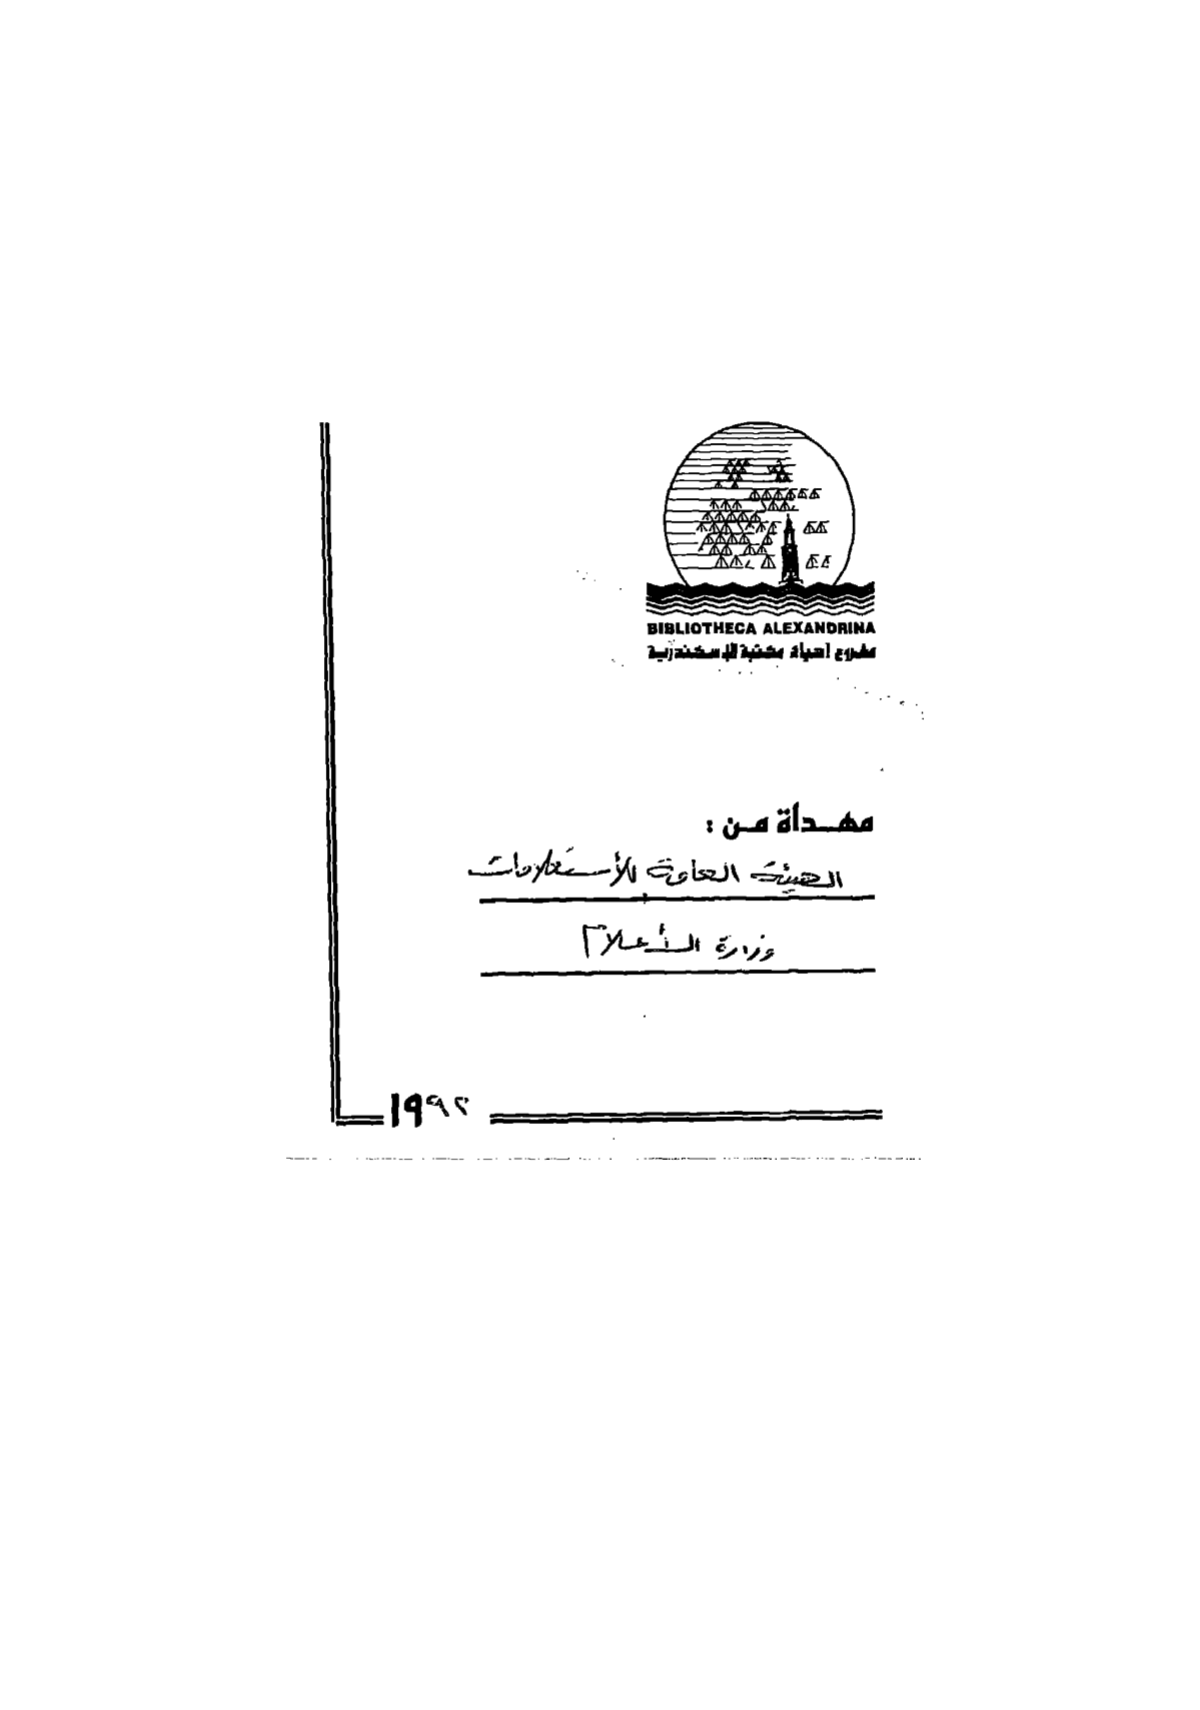 BIBLIOTHECA ALEXANDRINA
مشروع إحياء مكتبة الإسكندرية
مهداة من :
الهيئة العامة للأستعلامات
وزارة الأعلام
١٩٩٢